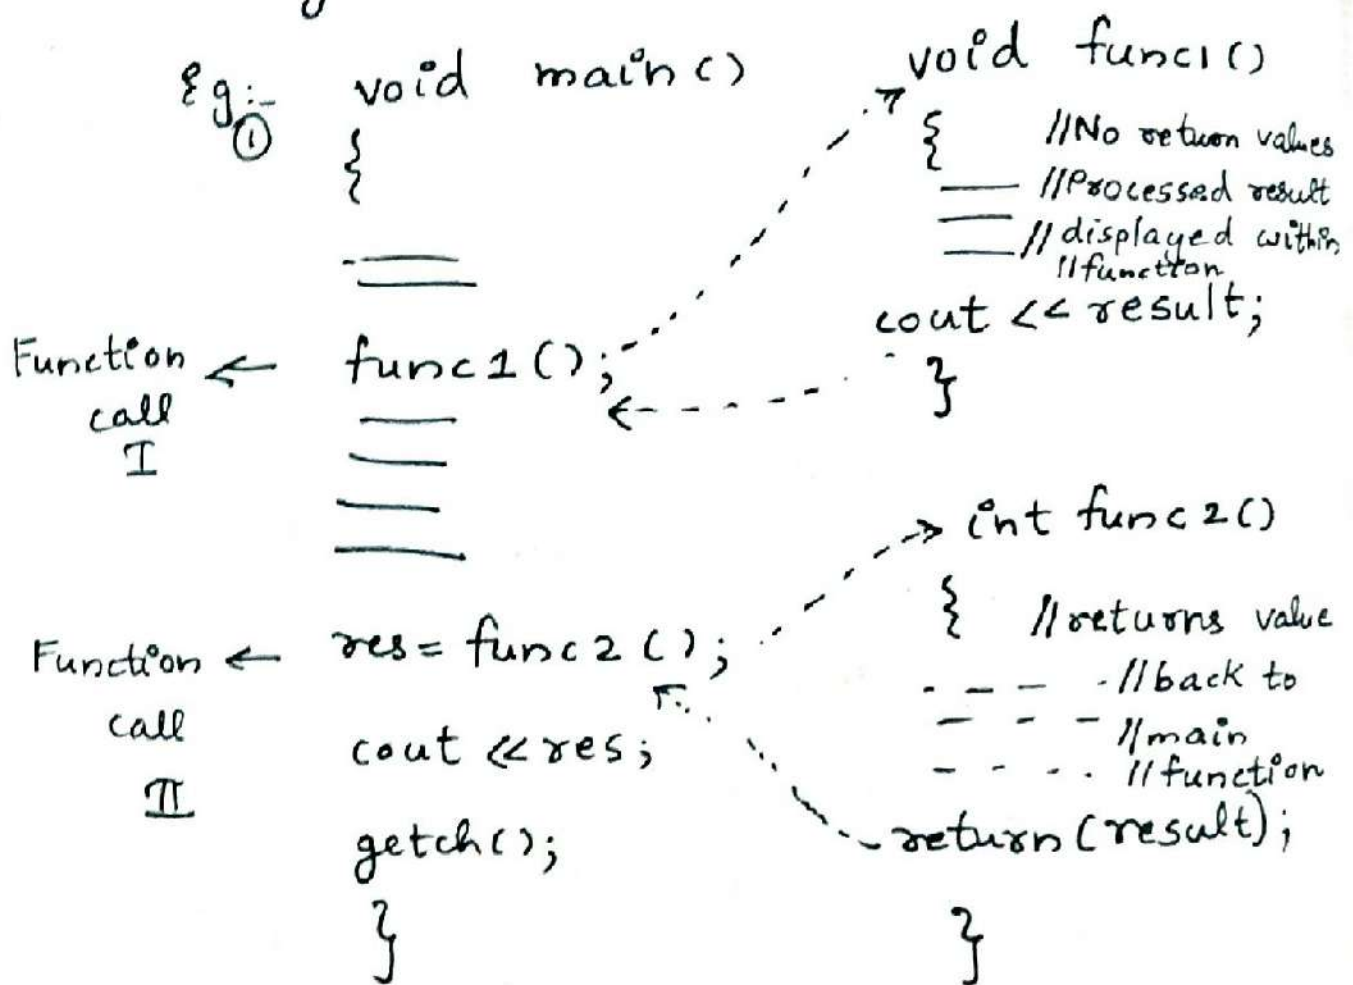 Eg:-
①
void main()
{
Function call I ← func1();
Function call II ← res = func2();
cout << res;
getch();
}
void func1()
{ //No return values
//Processed result
//displayed within
//function
cout << result;
}
int func2()
{ //returns value
//back to
//main
//function
return(result);
}